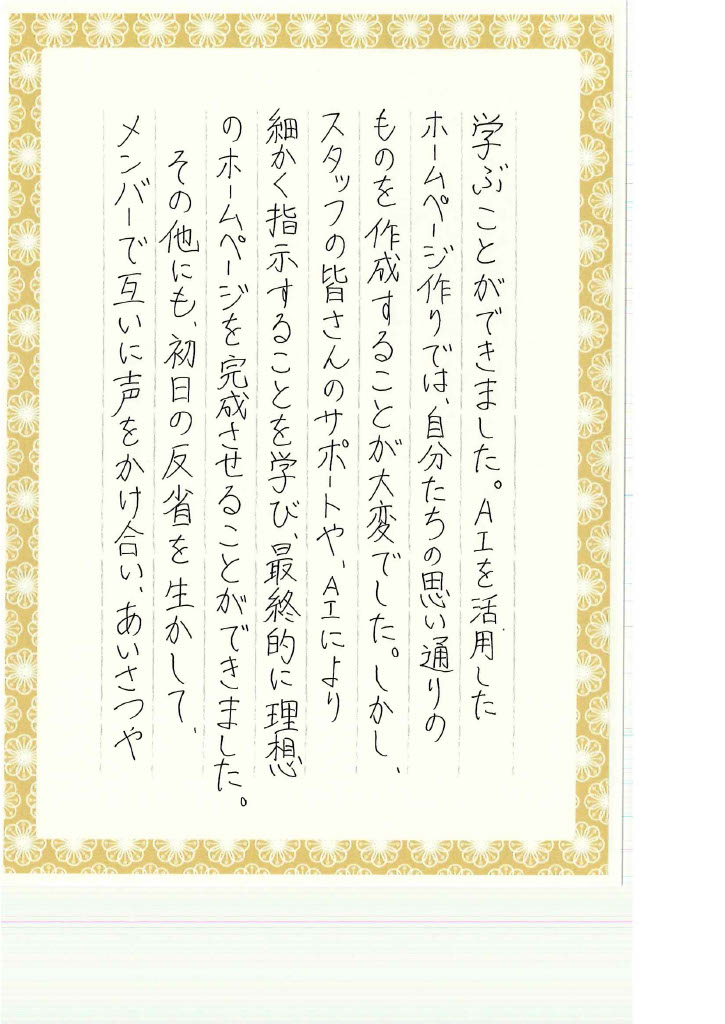 学ぶことができました。AIを活用した
ホームページ作りでは、自分たちの思い通りの
ものを作成することが大変でした。しかし、
スタッフの皆さんのサポートや、AIにより
細かく指示することを学び、最終的に理想
のホームページを完成させることができました。
その他にも、初日の反省を生かして、
メンバーで互いに声をかけ合い、あいさつや